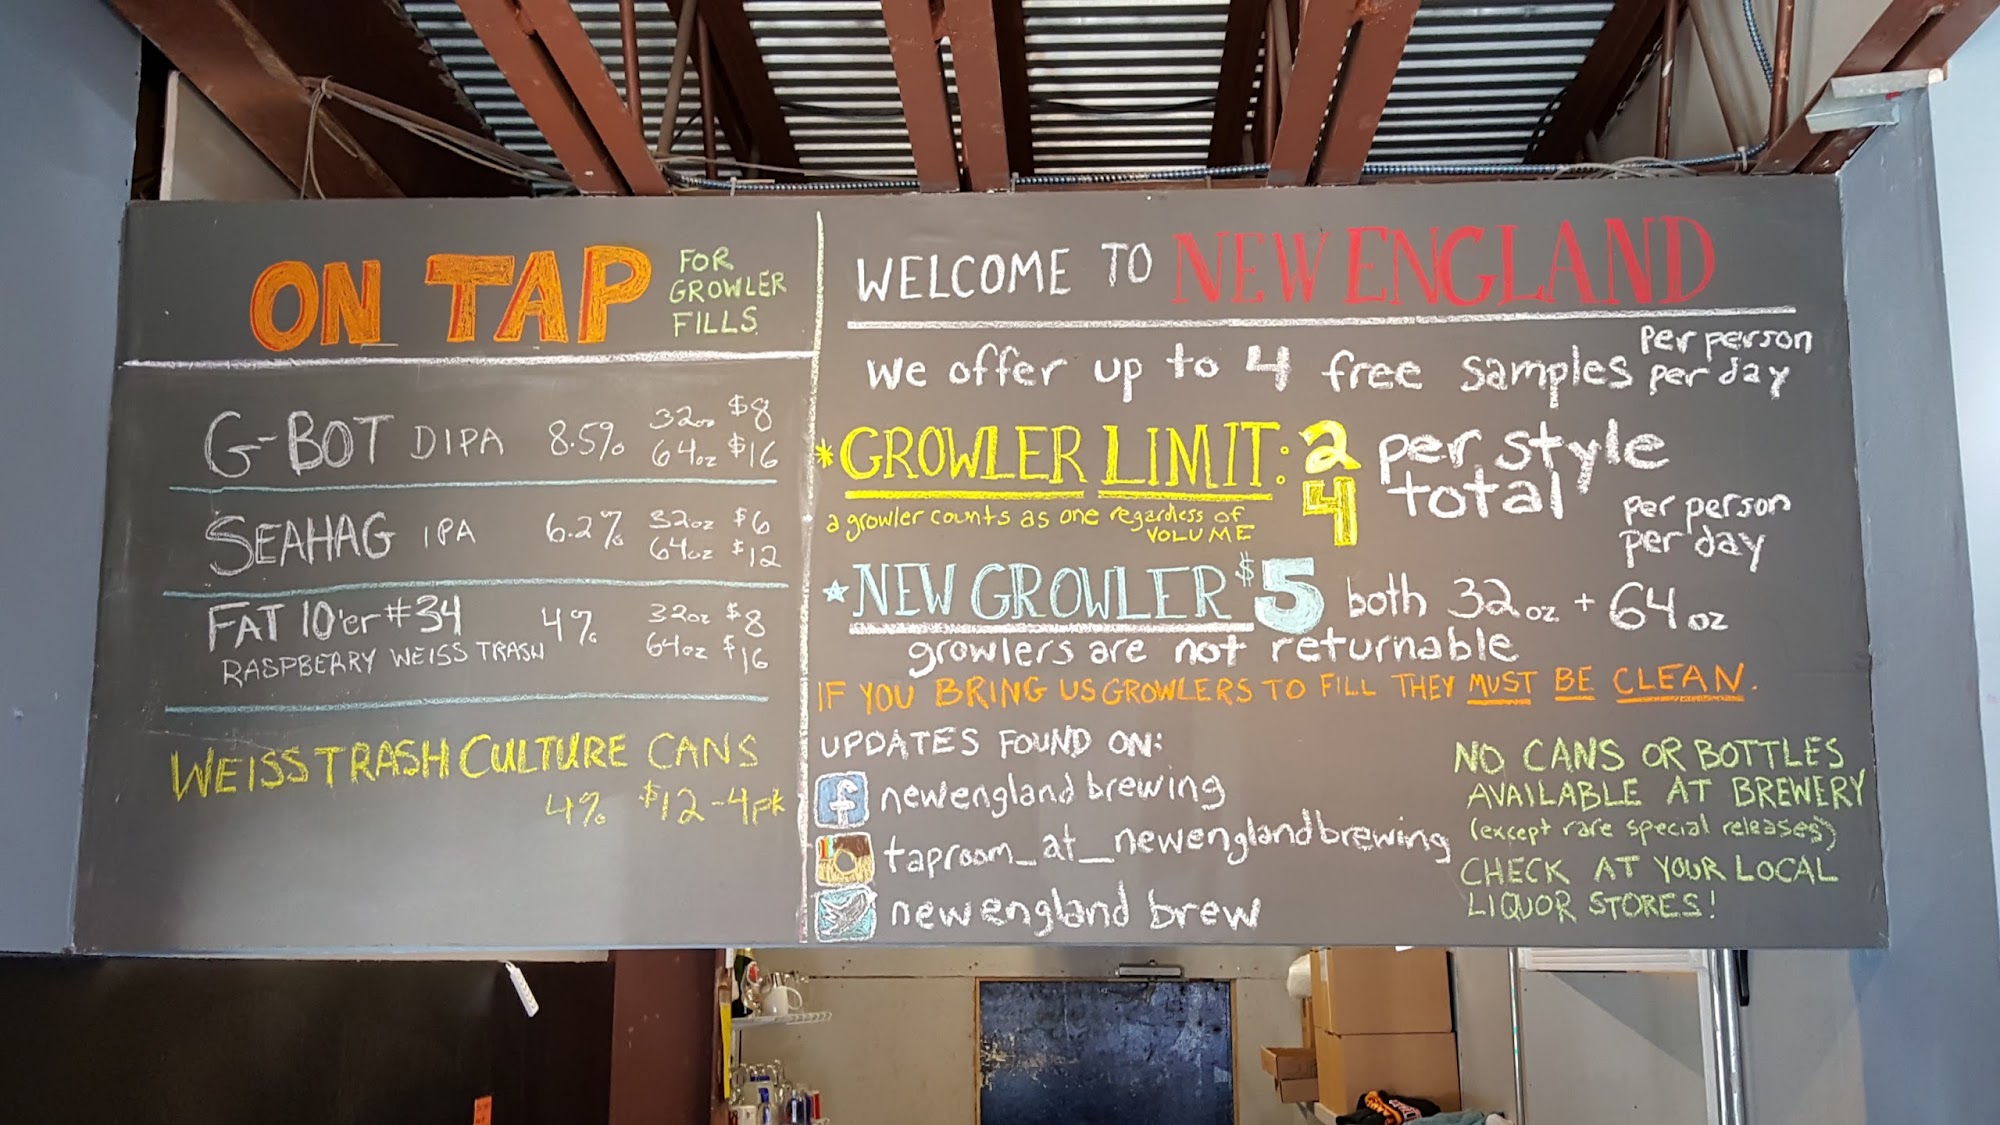 ON TAP
FOR
GROWLER
FILLS
G-BOT DIPA 8.5% 32oz $8
64oz $16
SEAHAG IPA 6.2% 32oz $6
64oz $12
FAT 10'er #34 4% 32oz $8
RASPBERRY WEISS TRASH 64oz $16
WEISS TRASH CULTURE CANS
4% $12-4pk
WELCOME TO NEW ENGLAND
we offer up to 4 free samples per person
per day
*GROWLER LIMIT: 2 per style
4 total
a growler counts as one regardless of
VOLUME
per person
per day
NEW GROWLER $5 both 32oz + 64oz
growlers are not returnable
IF YOU BRING US GROWLERS TO FILL THEY MUST BE CLEAN.
UPDATES FOUND ON:
f newengland brewing
taproom_at_newenglandbrewing
newengland brew
NO CANS OR BOTTLES
AVAILABLE AT BREWERY
(except rare special releases)
CHECK AT YOUR LOCAL
LIQUOR STORES!